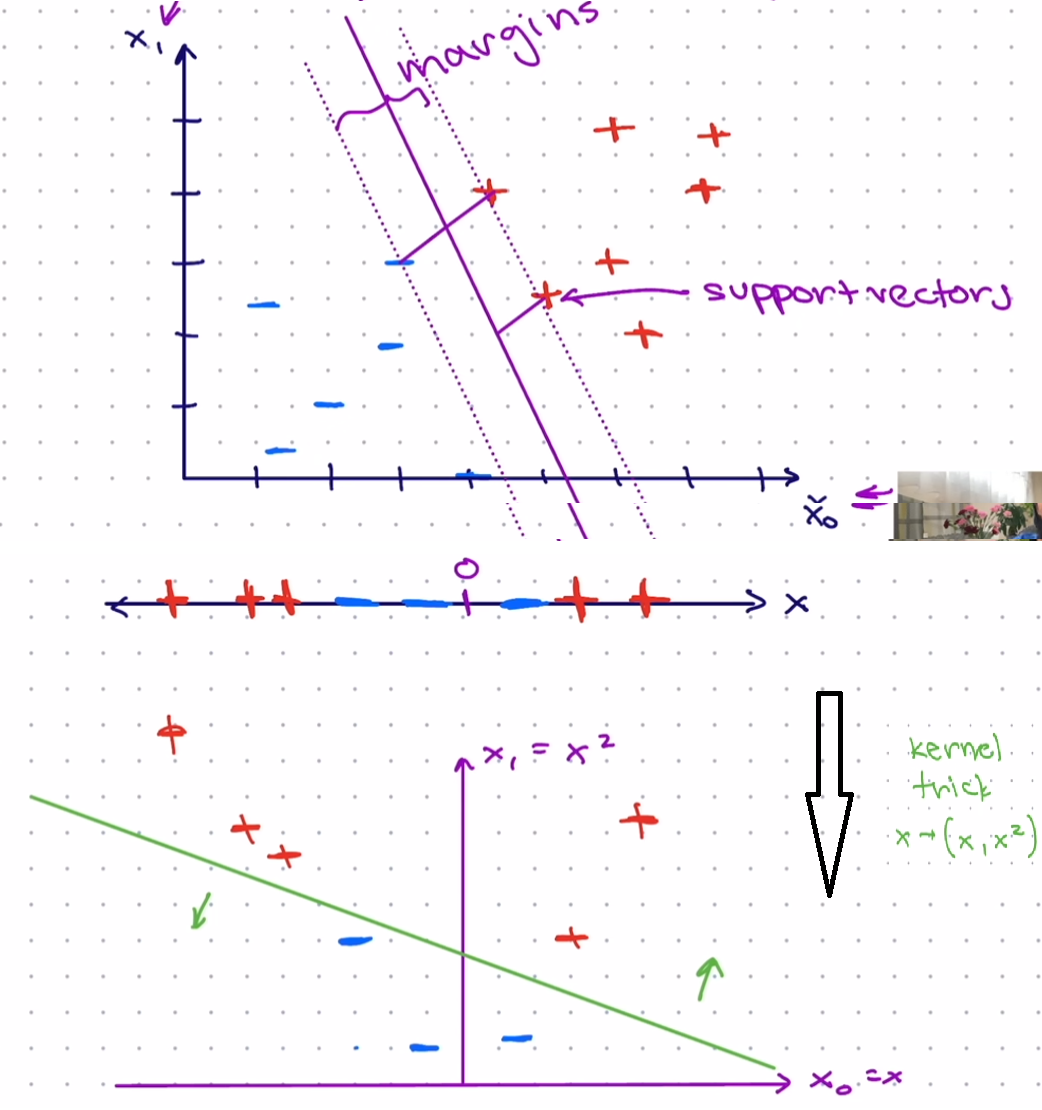 x₁
margins
support vectors
x̌₀
0
x
x₁ = x²
kernel
trick
x → (x, x²)
x₀ = x